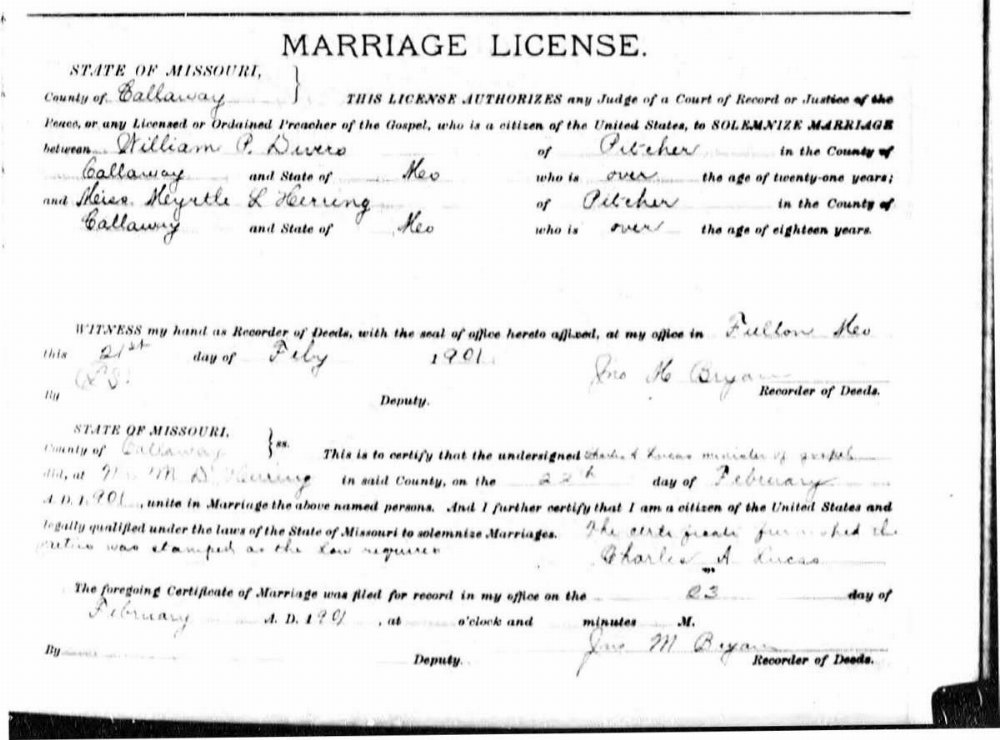 MARRIAGE LICENSE.
STATE OF MISSOURI,
County of Callaway } THIS LICENSE AUTHORIZES any Judge of a Court of Record or Justice of the
Peace, or any Licensed or Ordained Preacher of the Gospel, who is a citizen of the United States, to SOLEMNIZE MARRIAGE
between William P. Divers of Pitcher in the County of
Callaway and State of Mo who is over the age of twenty-one years;
and Miss Myrtle L Herring of Pitcher in the County of
Callaway and State of Mo who is over the age of eighteen years.
WITNESS my hand as Recorder of Deeds, with the seal of office hereto affixed, at my office in Fulton Mo
this 21st day of Feby 1901.
Jno M Bryan
By Deputy. Recorder of Deeds.
STATE OF MISSOURI,
County of Callaway } ss. This is to certify that the undersigned Charles A Lucas minister of gospel
did, at M D Herring in said County, on the 22th day of February
A. D. 1901, unite in Marriage the above named persons. And I further certify that I am a citizen of the United States and
legally qualified under the laws of the State of Missouri to solemnize Marriages. The certificate furnished the
parties was stamped as the law requires Charles A Lucas
The foregoing Certificate of Marriage was filed for record in my office on the 23 day of
February A. D. 1901, at o'clock and minutes M.
Jno M Bryan
By Deputy. Recorder of Deeds.